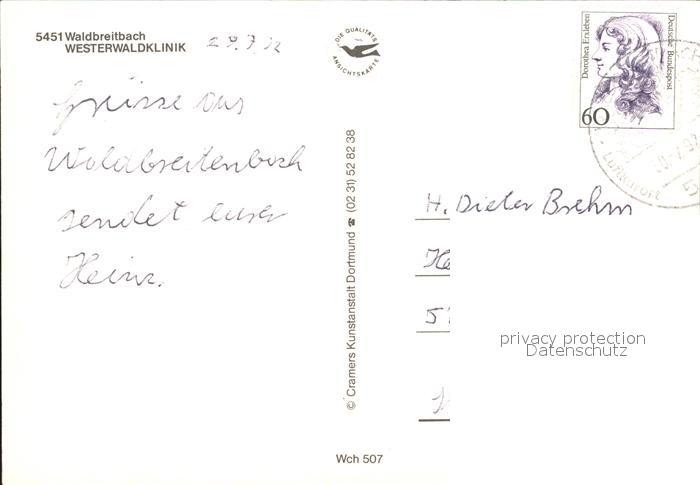 5451 Waldbreitbach
WESTERWALDKLINIK
29.7.92
DIE QUALITÄTS
ANSICHTSKARTE
Grüsse aus
Waldbreitenbach
sendet euer
Heinz.
© Cramers Kunstanstalt Dortmund ☎ (02 31) 52 82 38
Dorothea Erxleben
Deutsche Bundespost
60
Luftkurort
H. Dieter Brehm
He
5
privacy protection
Datenschutz
Wch 507